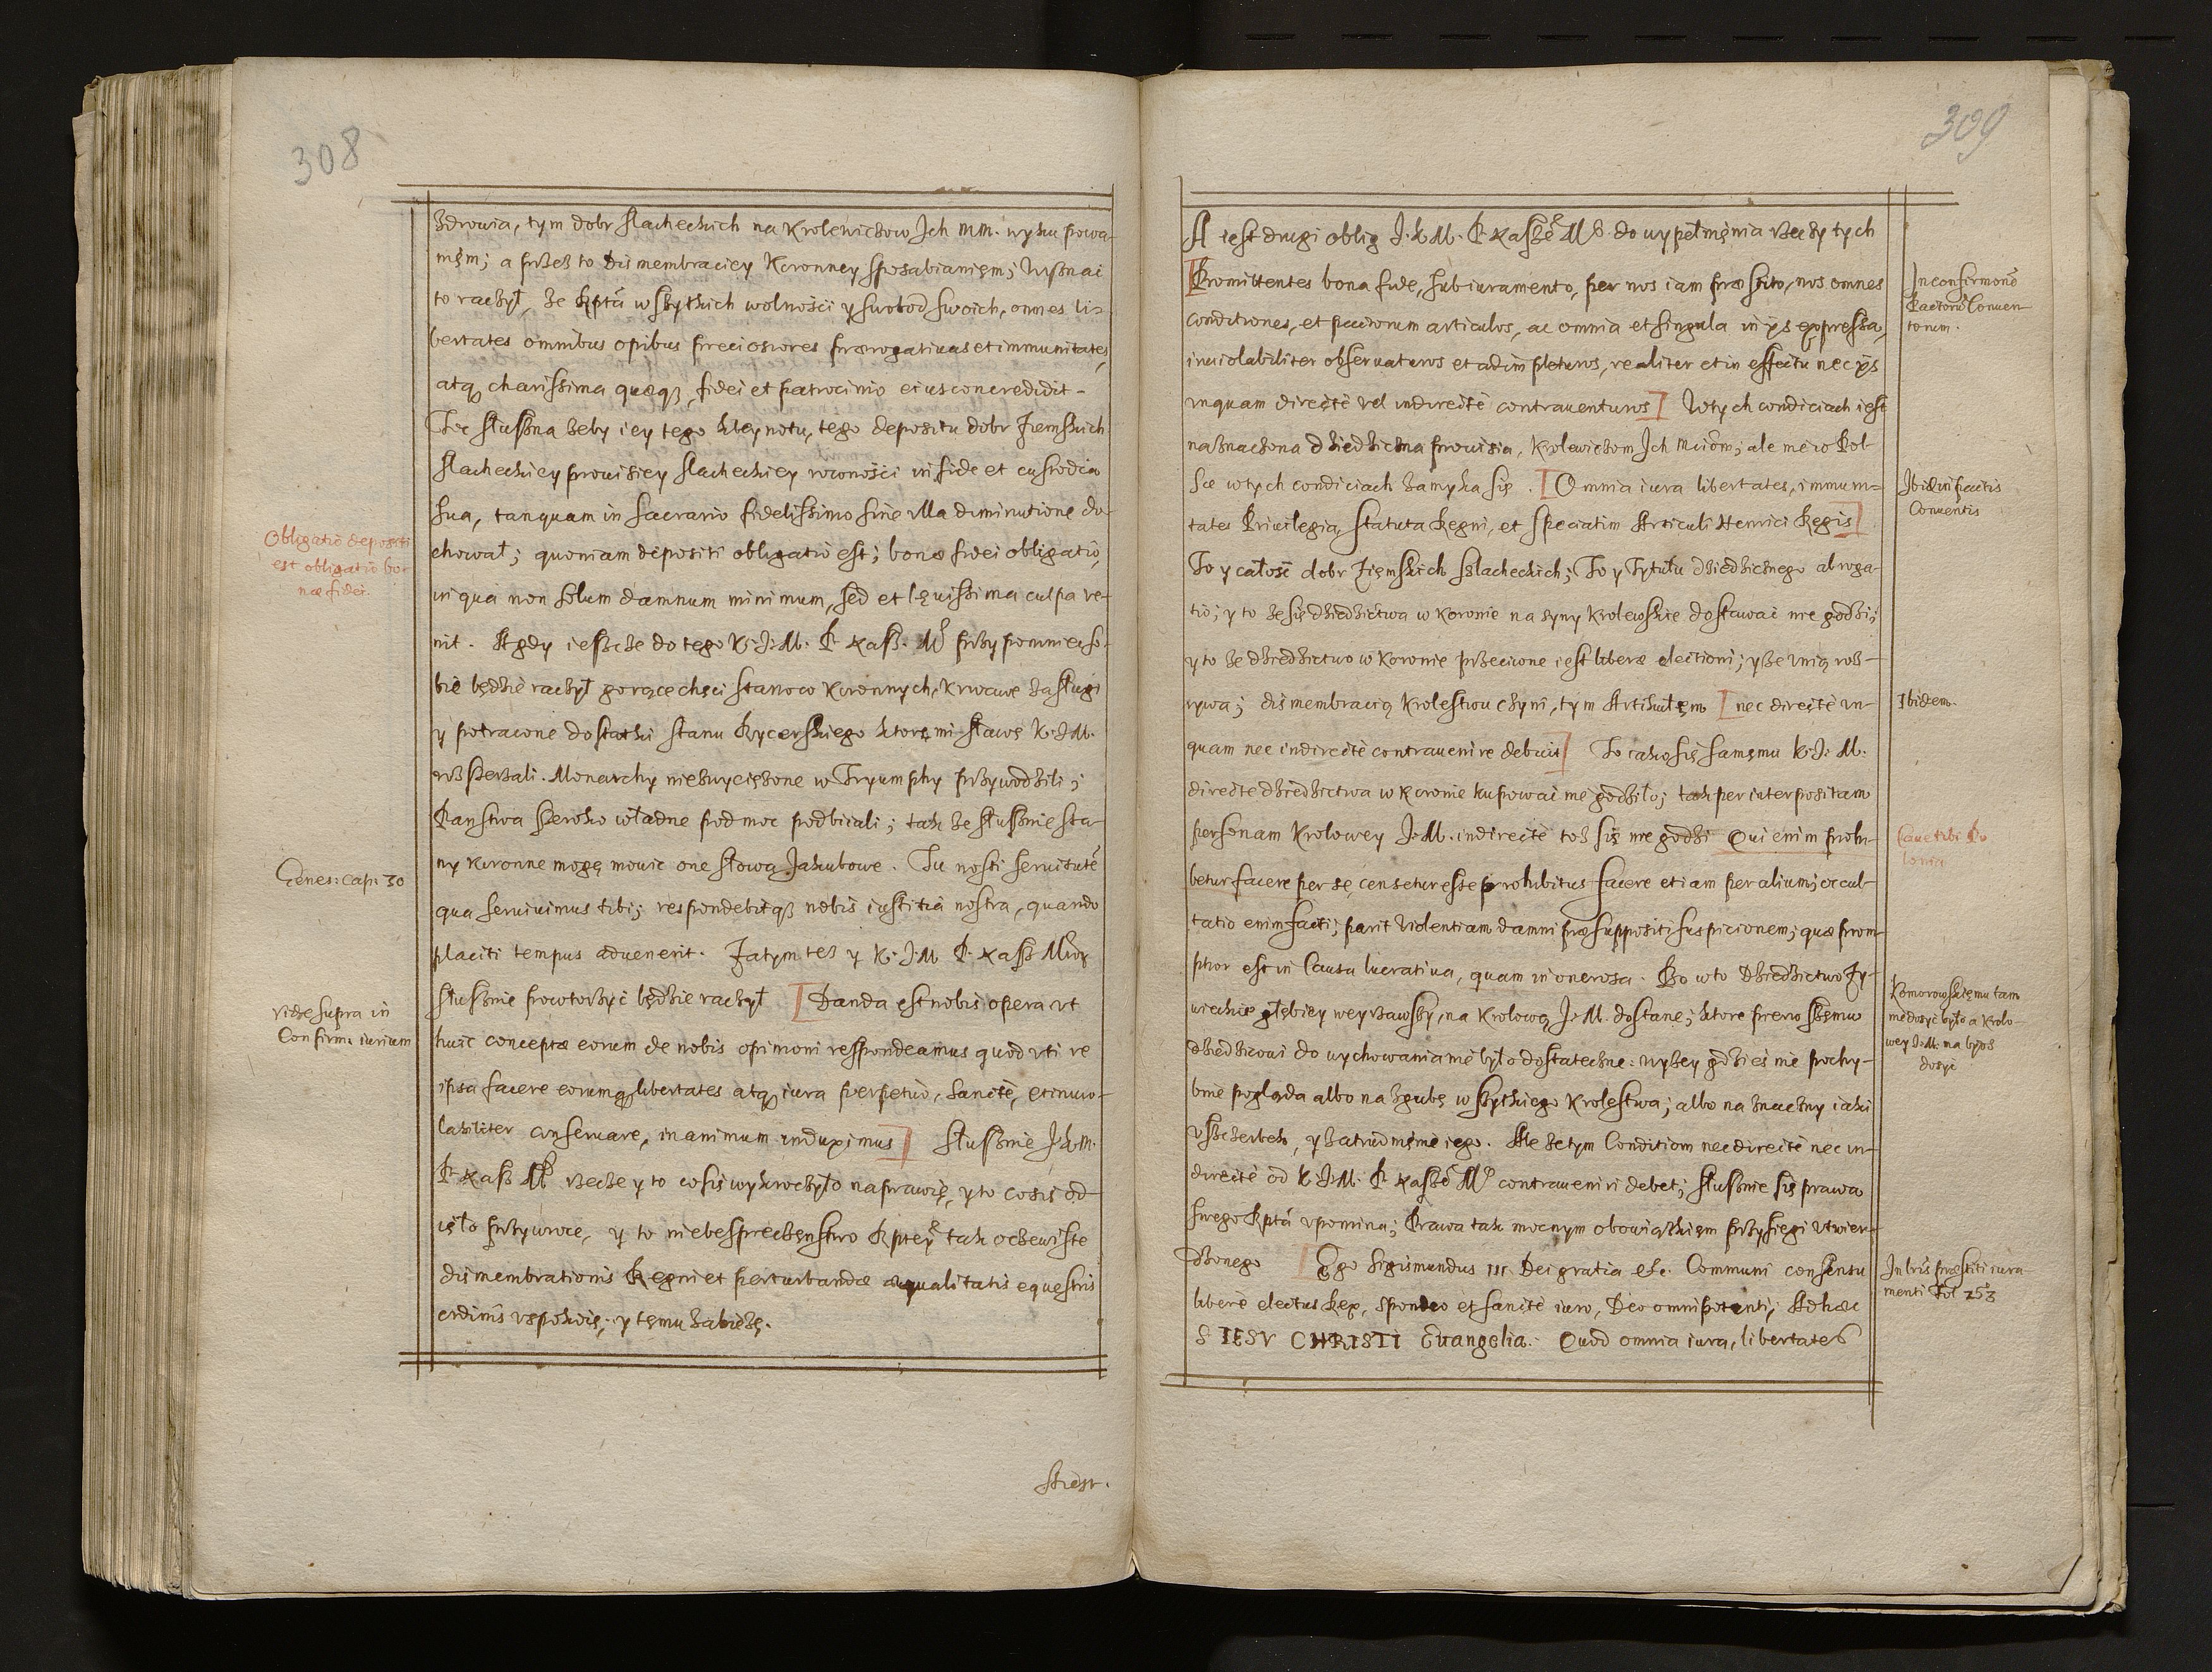 308
zdrowia, tym dobr slacheckich na Krolewiczow Jch mm. wyku powa-
nięm; a przez to Dismembraciey Koronney sposabianięm; Wyznai
to raczył, że Rptã wszytkich wolności y swobod swoich, omnes li-
bertates omnibus opibus preciosiores prærogatiuas et immunitates,
atq charissima quæq, fidei et patrocinio eius concredidit.
Toc słuszna żeby iey tego kleynotu, tego depositu dobr Ziemskich
slacheckiey prouisiey slacheckiey rowności in fide et custodia
sua, tanquam in sacrario fidelissimo sine vlla diminutione do-
chował; quoniam depositi obligatio est; bonæ fidei obligatio,
in qua non solum damnum minimum, sed et lęuissima culpa ve-
nit. A gdy ieszcze do tego K.J.M. P. nasz. Mł przypomniec so-
bie będzie raczył gorące chęci stanow Koronnych, Krwawe zasługi
y potracone dostatki stanu Rycerskiego ktoręmi sławę K.J.M.
rozszerzali. Monarchy niezwyciężone w Tryumphy przywodzili;
Państwa szeroko władne pod moc podbiiali; tak że słusznie sta-
ny Koronne mogą mowic one słowa Jakubowe. Tu nosti seruitutẽ
qua seruiuimus tibi; respondebitq nobis iustitia nostra, quando
placiti tempus aduenerit. Zatym też y K.J.M P. nasz Młwy
słusznie powtorzyć będzie raczył [Danda est nobis opera vt
huic conceptæ eorum de nobis opinioni respondeamus quod vti re
ipsa facere eorumq libertates atq iura perpetuò, sanctè, et inuio-
labiliter conseruare, in animum induximus] Słusznie J.K.M.
P. nasz Mł rzecze y to cosię wykroczyło naprawię, y to co się od-
ięło przywroce, y to niebespieczęnstwo Rptey tak oczewiste
dismembrationis Regni et perturbandæ æqualitatis equestris
ordinis vspokoię; y tęmu zabieżę.
Obligatio depositi
est obligatio bo-
næ fidei.
Genes: cap: 30
vide supra in
Confirm: iurium
309
A iest drugi oblig J.K.M. P. naszé Mł do wypełnięnia rzeczy tych
[Promittentes bona fide, sub iuramento, per nos iam præstito, nos omnes
conditiones, et pactorum articulos, ac omnia et singula in ÿs expressa,
inuiolabiliter obseruaturos et adimpleturos, realiter et in effectu nec ÿs
vnquam directè vel indirectè contrauenturos] W tych condiciach iest
naznaczona dziedziczna prouisia, Krolewiczom Jch Mciõm; ale nie w Pol-
sce w tych condiciach zamyka się. [Omnia iura libertates, immuni-
tates Priuilegia, Statuta Regni, et speciatim Articuli Henrici Regis]
To y całość dobr Ziemskich Szlacheckich; To y Tytułu dziedzicznego abroga-
tio; y to że się dziedzictwa w Koronie na syny Krolewskie dostawać nie godzi;
y to że dziedzictwo w Koronie przeciwne iest liberæ electioni; y że vnią roz-
rywa; dismembracią Krolestwu czyni, tym Artikułęm [nec directè vn-
quam nec indirectè contrauenire debuit] To iako się samęmu K.J.M.
directe dziedzictwa w Koronie kupować nie godziło; tak per interpositam
personam Krolowey J.M. indirectè toż się nie godzi Qui enim prohi-
betur facere per se, censetur esse prohibitus facere etiam per alium; occul-
tatio enim facti; parit videntiam damni præsuppositi suspicionem; quæ prom-
ptior est in Causa lucratiua, quam in onerosa. Bo w to Dziedzictwo Zy-
wieckie głębiey weyrzawszy, na Krolową J.M. dostane; ktore pierwszęmu
dziedzicowi do wychowania nie było dostateczne: wyżey gdzieś nie pochy-
bnie pogląda albo na zgubę wszytkiego Krolestwa; albo na znaczny iaki
vszczerbek, y zatrudnięnie iego. Ale że tym Conditiom nec directè nec in-
directè od K.J.M. P. naszé Mł contraueniri debet; słusznie się prawa
swego Rptã vpomina; Prawa tak mocnym obowiązkięm przysięgi vtwier-
dzonego [Ego Sigismundus III. Dei gratia etc. Communi consensu
liberè electus Rex, spondeo et sanctè iuro, Deo omnipotenti; Ad hæc
S IESV CHRISTI Euangelia: Quod omnia iura, libertates
In confirmonẽ
Pactorũ Conuen-
torum.
Ibid in pactis
Conuentis
Ibidem.
Caue tibi Po-
lonia
Komorowskięmu tam
nie dosyć było a Krolo-
wey J.M. na byoz
dosyć
In bris præstiti iura
menti Fol 253